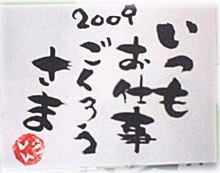 2009
いつも
お仕事
ごくろう
さま